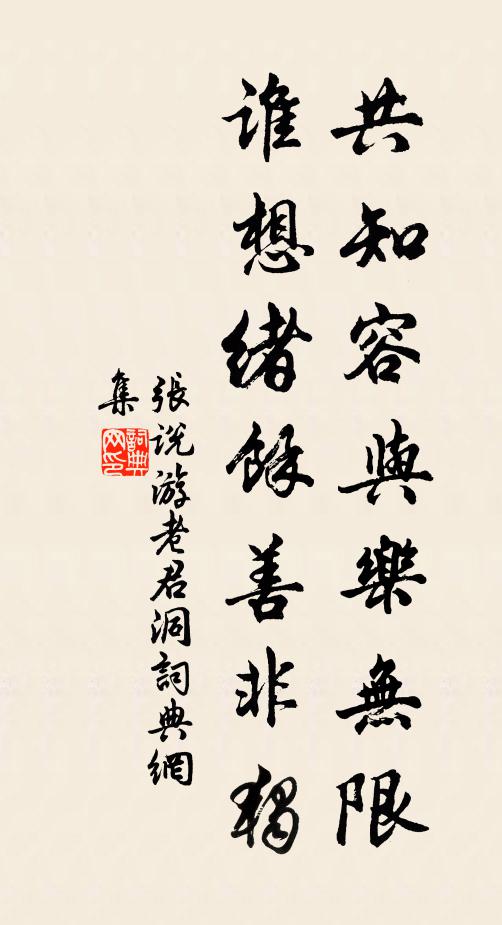 共知容與樂無限
誰想緒餘善非獨
張說游老君洞詞典網
集
詞典网印